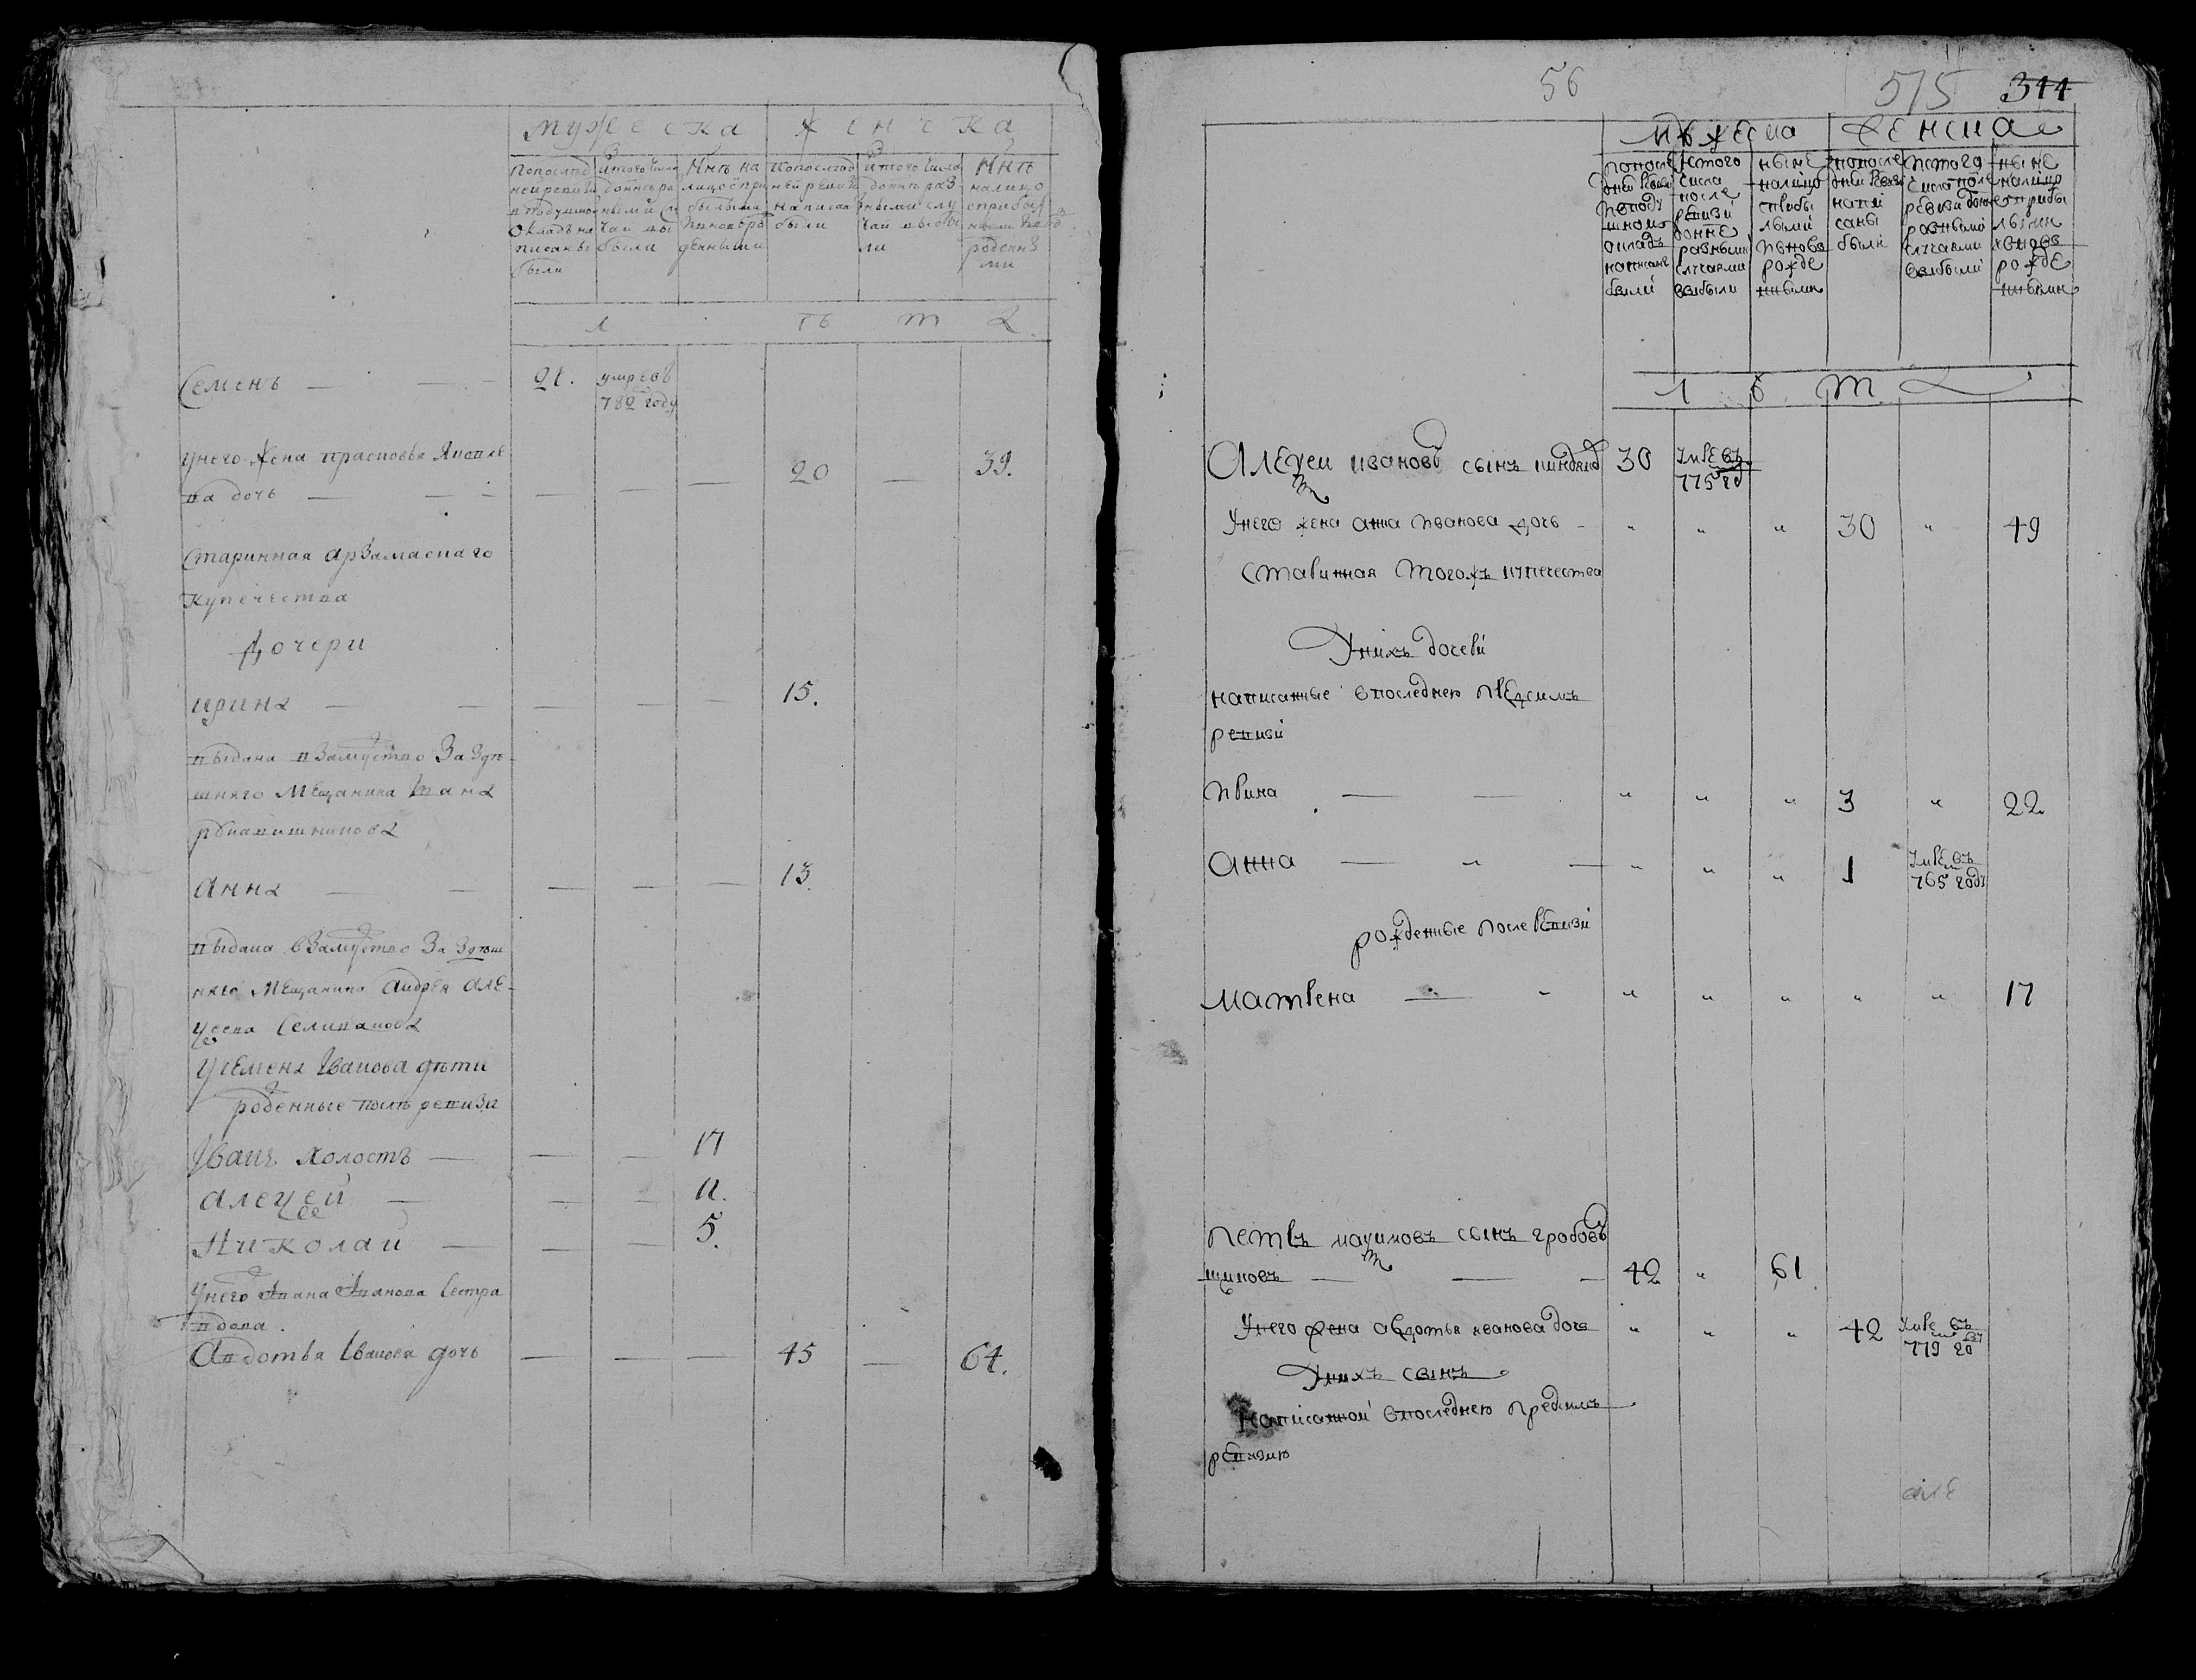 мужеска женска
Попослед
ней ревизи
вподушном
окладе на
писаны
были
Изтого числа
доныне ра
зными слу
чаи вы
были
Ныне на
лицо спри
былыми
вновь ро
жденными
Попослед
ней ревизи
написан
были
Изтого числа
доныне раз
ными слу
чаи выбы
ли
Ныне
налицо
сприбы
лыми вно
рожденны
ми
л ѣ т а
Семенъ — 21. умре въ
782 году
унего жена прасковья Яковле
ва дочь — — — — 20 — 39.
Старинная арзамаскаго
купечества
дочери
ирина — — — — — 15.
выдана взамуство За Зде
шняго мещанина Ивана
анна — — — — — 13.
выдана взамуство За Здеш
няго мещанина андрея але
ѯеева Селиванова
уСемена Iванова дети
рожденные после ревизи
Iванъ холостъ — — — 17
алеѯей — — — 11.
Николай — — — 5.
Унего Ивана Иванова Сестра
вдова
Авдотья Iванова дочь — — — 45 — 64.
56 515 344
мужеска женска
попосле
дней реви
зи
вподу
шномъ
окладе
написаны
были
изтого
числа
после
ревизи
доныне
разными
случаями
выбыли
ныне
налицо
сприбы
лыми
ивновь
рожде
нными
попосле
дней реви
напи
саны
были
изтого
числа после
ревизи доныне
разными
случаями
выбыли
ныне
налицо
сприбы
лыми
ивновь
рожде
нными
л ѣ т а
Алеѯеи ивановъ сынъ 30 умре въ
775 го
Унего жена анна иванова дочь - " " " 30 " 49
Старинная тогожъ купечества
Унихъ дочери
написанные впоследнею предсимъ
ревизи
ирина — — " " " 3 " 22
анна — " — " " " 1 умре въ
765 году
рожденные после ревизи
матрена — - " " " " " 17
петръ маѯимовъ сынъ гробов
щиковъ — — - 42 " 61
Унего жена авдотья иванова дочь " " " 42 умре въ
779 го
Унихъ сынъ
написанной впоследнею предсимъ
ревизию
але